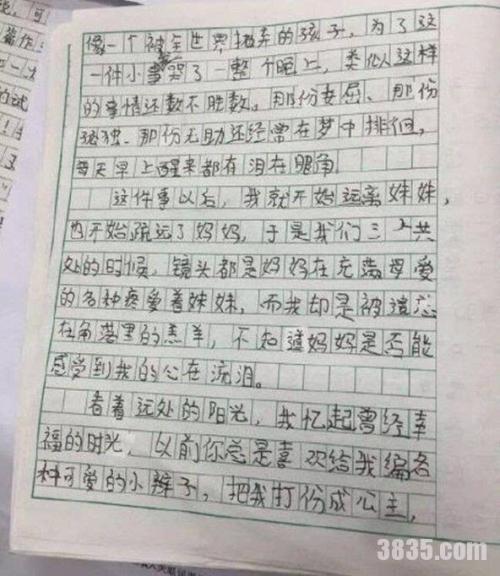 像一个被全世界抛弃的孩子，为了这
一件小事哭了一整个晚上，类似这样
的事情还数不胜数。那份委屈、那份
孤独、那份无助还经常在梦中排徊，
每天早上醒来都有泪在眼角
这件事以后，我就开始远离妹妹，
也开始疏远了妈妈，于是我们三人共
处的时候，镜头都是妈妈在充满母爱
的各种疼爱着妹妹，而我却是被遗忘
在角落里的羔羊，不知道妈妈是否能
感受到我的心在流泪。
看着远处的阳光，我忆起曾经幸
福的时光，以前你总是喜欢给我编各
种可爱的小辫子，把我打份成公主，
3835.com